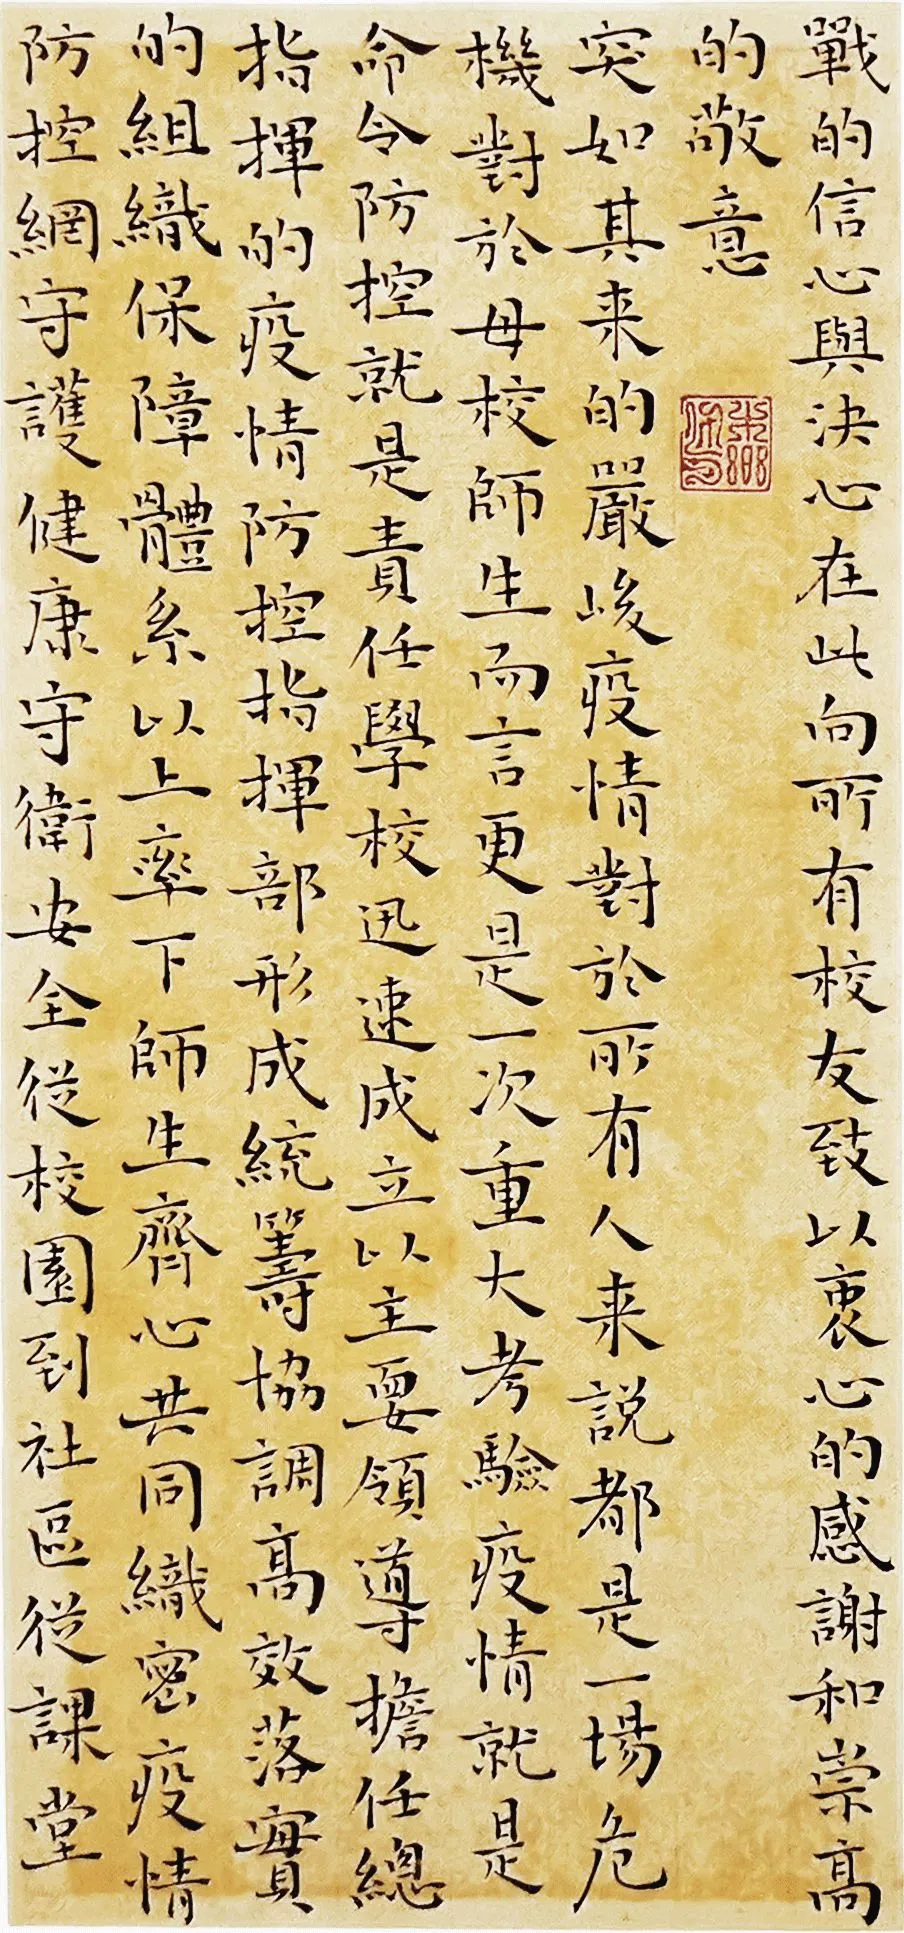 戰的信心與決心在此向所有校友致以衷心的感謝和崇高
的敬意
突如其来的嚴峻疫情對於所有人来説都是一場危
機對於母校師生而言更是一次重大考驗疫情就是
命令防控就是責任學校迅速成立以主要領導擔任總
指揮的疫情防控指揮部形成統籌協調高效落實
的組織保障體系以上率下師生齊心共同織密疫情
防控網守護健康守衛安全從校園到社區從課堂